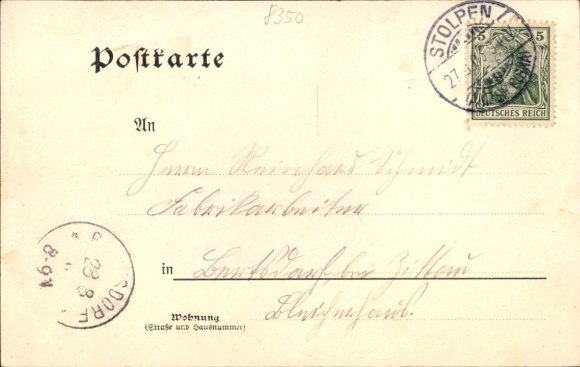 8350
Postkarte
STOLPEN
27
5 5
DEUTSCHES REICH
An
Herrn Reinhard Schmidt
Fabrikarbeiter
in Bertsdorf bei Zittau
Bleicherhaus.
SDORF
23 8
8-9V
Wohnung
(Straße und Hausnummer)